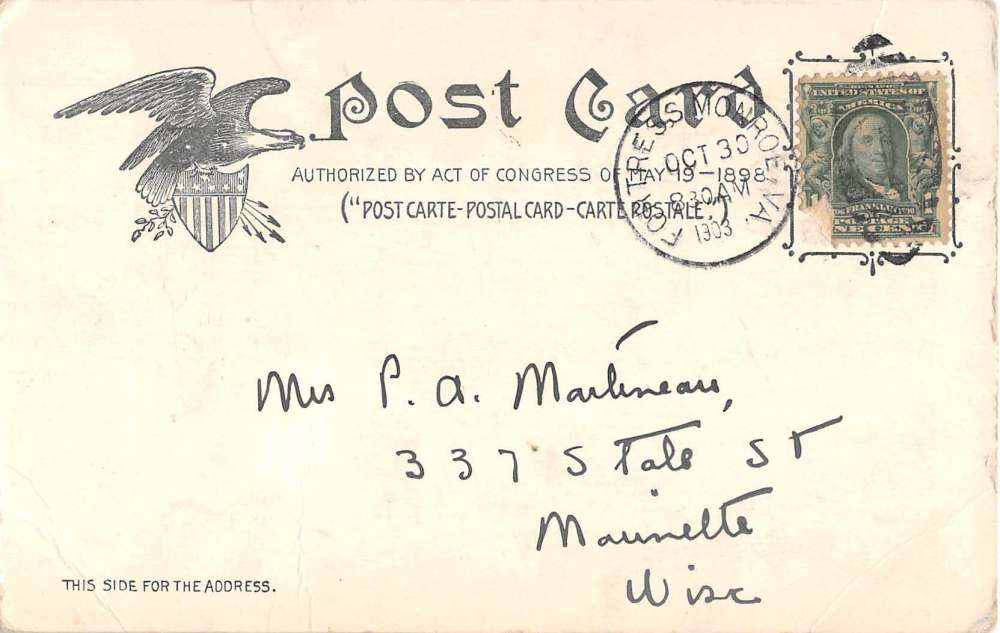 Post Card
AUTHORIZED BY ACT OF CONGRESS OF MAY 19-1898
("POST CARTE-POSTAL CARD-CARTE POSTALE.")
FORTRESS MONROE, VA.
OCT 30
8-30 AM
1903
UNITED STATES OF
AMERICA
FRANKLIN
POSTAGE
ONE CENT
Mrs P. A. Martineau,
337 State St
Marinette
Wisc
THIS SIDE FOR THE ADDRESS.